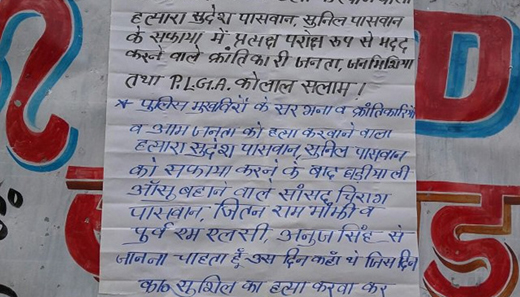 हत्यारा सुदेश पासवान, सुनिल पासवान
के सफाया में प्रत्यक्ष परोक्ष रूप से मद्द
करने वाले क्रांतिकारी जनता, जनमिलिशिया
तथा P.L.G.A. को लाल सलाम !
* पुलिस मुखबिरों के सरगना व क्रांतिकारियों
व आम जनता को हत्या करवाने वाला
हत्यारा सुदेश पासवान, सुनिल पासवान
को सफाया करने के बाद घड़ीयाली
आँसू बहाने वाले सांसद चिराग
पासवान, जितन राम माँझी व
पूर्व एम एलसी, अनुज सिंह से
जानना चाहता है, उस दिन कहाँ थे जिस दिन
का० सुशिल का हत्या करवा कर